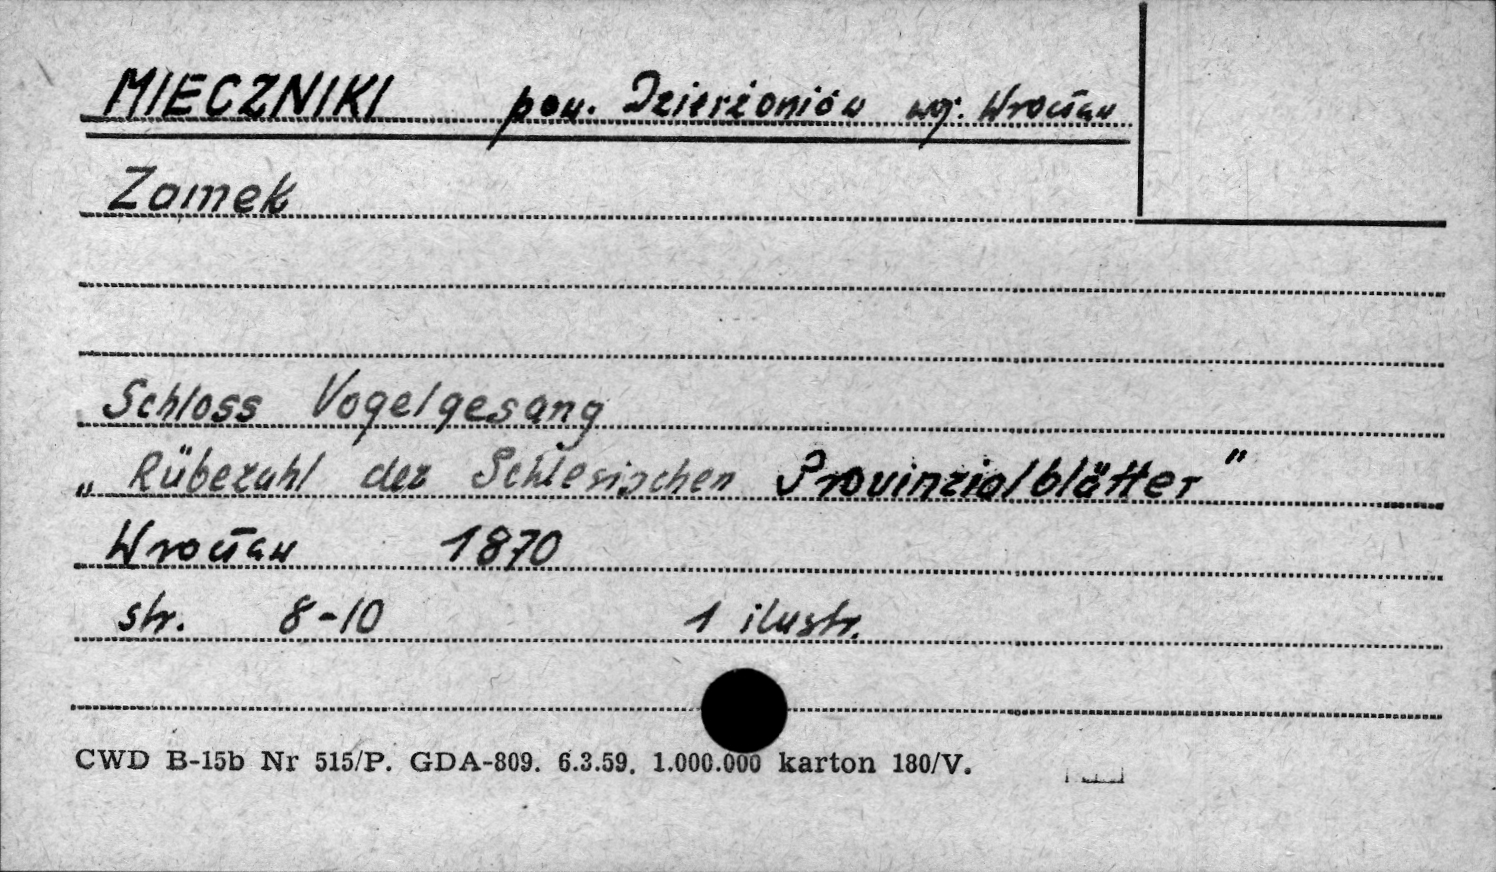 MIECZNIKI pow. Dzierżoniów woj. Wrocław
Zamek
Schloss Vogelgesang
„Rübezahl der Schlesischen Provinzialblätter"
Wrocław 1870
str. 8-10 1 ilustr.
CWD B-15b Nr 515/P. GDA-809. 6.3.59. 1.000.000 karton 180/V.